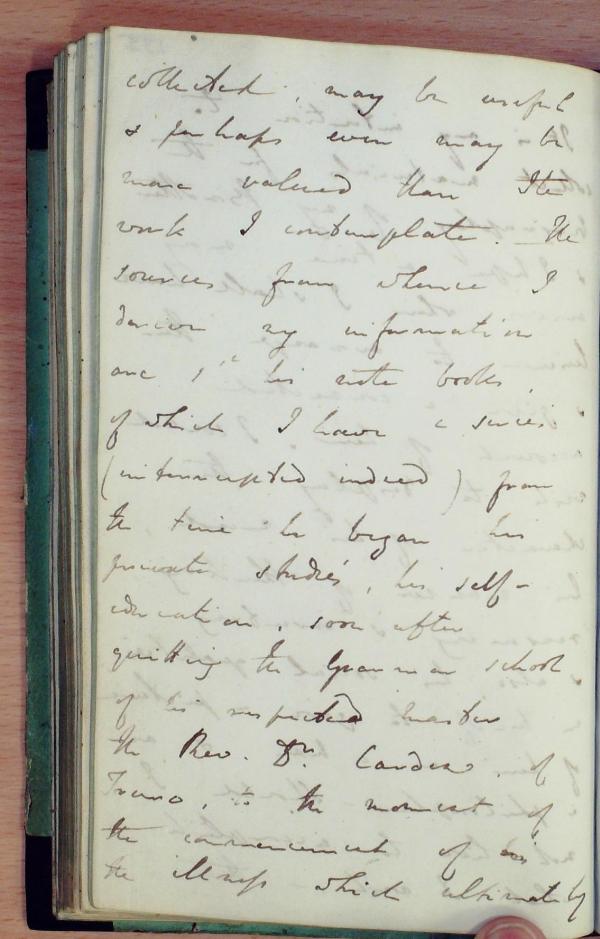 collected, may be useful
& perhaps even may be
more valued than the
work I contemplate. The
sources from whence I
derive my information
are 1st his note books,
of which I have a series
(interrupted indeed) from
the time he began his
private studies, his self-
education, soon after
quitting the Grammar school
of his respected master
the Rev. Dr. Cardew, of
Truro, to the moment of
the commencement of
the illness which ultimately